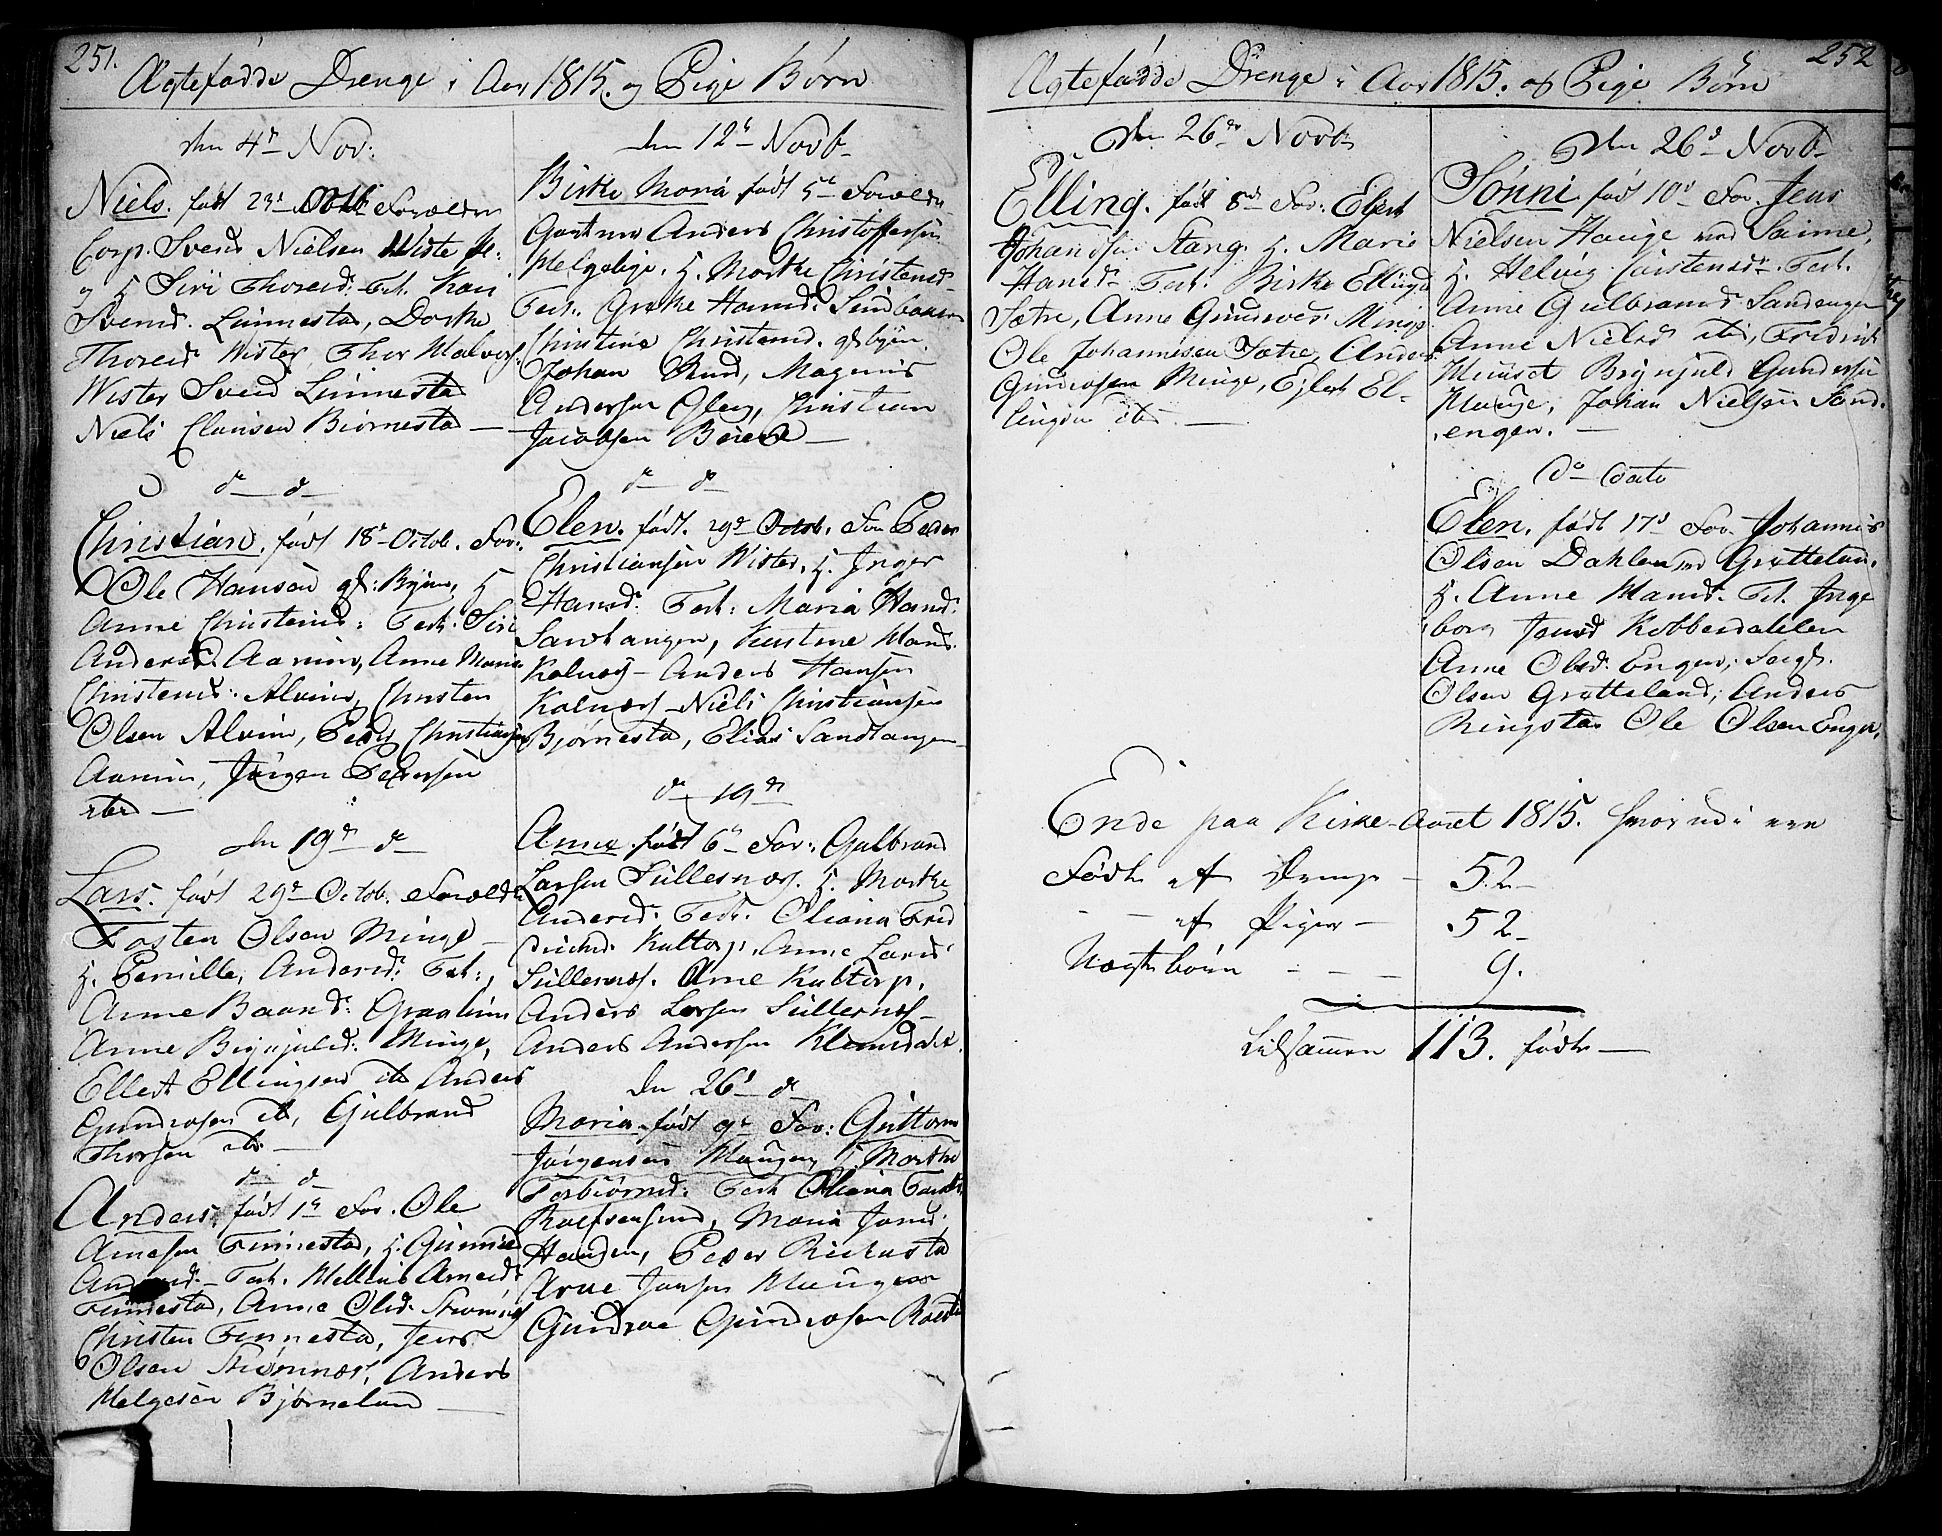 251.
Ægtefødde Drenge i Aar 1815. og Pige Børn
den 4de Nov:
Niels. født 23d Octb Forældre
Corp. Svend Nielsen Wister
og H Siri Thoresd: Test. Kari
Svensd. Linnestad, Dorthe
Thoresd Wister, Thor Halvors.
Wister Svend Linnestad
Niels Clausen Biørnestad —
d— d—
Christian. født 18d Octob. For:
Ole Hansen gl: Byen, H
Anne Christensd: Test: Siri
Andersd. Aanum, Anne Maria
Christensd. Alvim, Christen
Olsen Alvim, Peder Christians
Aanum, Jørgen Pedersen
sted —
den 19de d—
Lars. født 29d Octob. Forældre
Tosten Olsen Minge —
H. Pernille Andersd: Test:,
Anne Baardd: Graalum
Anne Brynjulsd: Minge,
Ellert Ellingsen ib Anders
Gundrosen ib, Gulbrand
Thorsen ib. —
d— d
Anders, født 1d For. Ole
Arnesen Finnestad, H. Gunnild
Andersd — Test. Mellius Arnesd:
Finnestad, Anne Olsd. Strømnes
Christen Finnestad, Jens
Olsen Strømnes, Anders
Helgesen Bjørneland —
den 12te Novb
Birthe Maria født 5d Forældre
Gaatmd Anders Christoffersen
Helgebye. H. Marthe Christensd
Test: Grethe Hansd: Sundløkken
Christine Christensd. gl byen.
Johan Rud, Magnus
Andersen Oleg, Christian
Jacobsen —
d— d—
Elen. født. 29d Octob. For Peder
Christiansen Wister, H. Inger
Hansd: Test: Maria Hansd:
Sandtangen, Kirstine Hansd
Kalnæs — Anders Hansen
Kalnæs — Niels Christiansen
Bjørnestad, Elias Sandtangen
d— 19de
Anne født 6d For: Gulbrand
Larsen Sullesnæs. H. Marthe
Andersd. Test. Oliana Frid
richsd. Kultorp, Anne Larsd
Sullesnæs. Arne Kultorp,
Anders Larsen Sullesnæs —
Anders Andersen
den 26d d—
Maria født 9d For: Guttorm
Jørgensen Haugen H. Marthe
Torbiørnsd: Test Oliana
Rolfsøesund, Maria Jansd.
Hauden, Peder
Arne Jansen Haugen
Gundroe Gundrosen
252
Ægtefødde Drenge i Aar 1815. og Pige Børn
den 26de Novb
Elling. født 8de For: Ejlert
Johansen Stang H. Marie
Hansd — Test: Birthe Ellingsd
Sætre, Anne Gundroesd Minge
Ole Johannesen Sætre, Anders
Gundrosen Minge, Ejlert El-
lingsen ibd —
den 26d Novb
Sønni født 10d For. Jens
Nielsen Hauge ved Saime,
H. Helvig Carstensdr. Test.
Anne Gulbransd Sandengen
Anne Nielsd ibd, Fredrik
Brynjuld Gundersen
Hauge, Johan Nielsen Sand-
engen. —
do dato
Elen. født 17d For. Johannes
Olsen Dahlen ved Grøtteland.
H. Anne Hansd. Test. Inge
borg Jensd Kobberdahlen
Anne Olsd. Enger,
Olsen Grøtteland, Anders
Ringstad Ole Olsen Enger,
Ende paa Kirke-Aaret 1815. hvorudi ere
Fødte af Drenge — 52 —
— — af Piger — 52 —
Uægte børn — — — 9.
tilsammen 113. fødte —